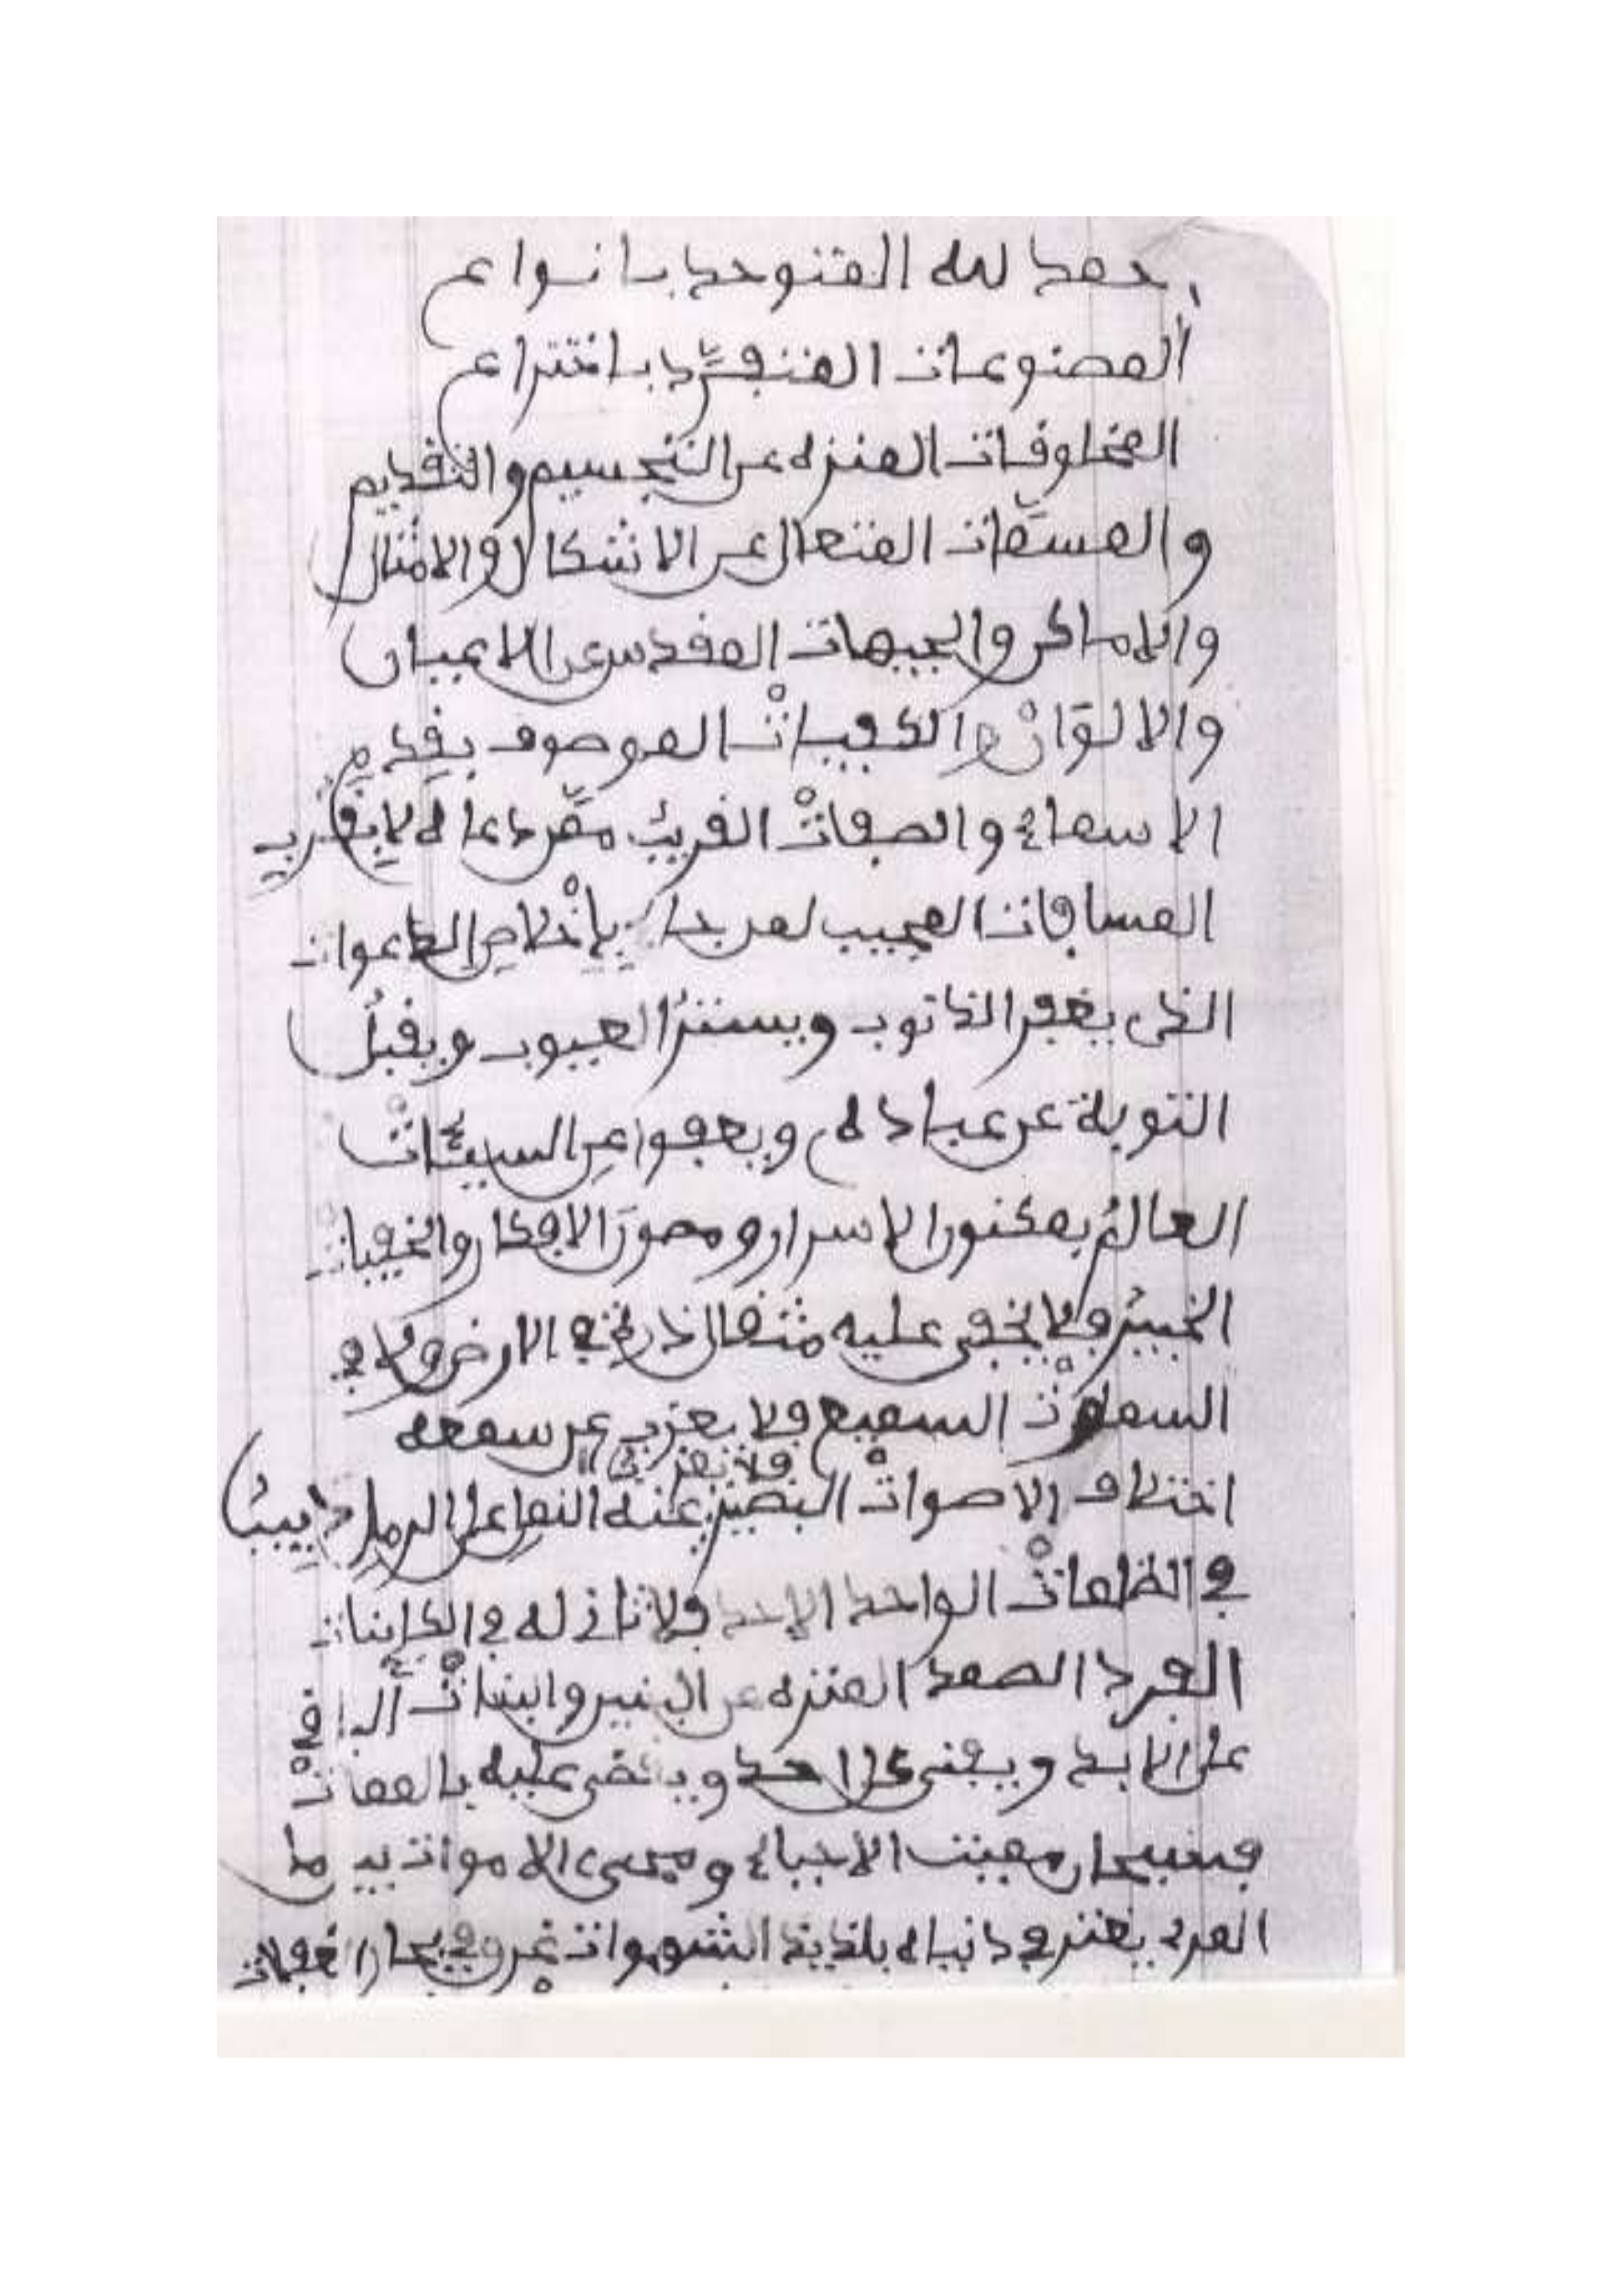 احمد لله المتوحد بانواع
المصنوعات المنفرد باختراع
المخلوقات المنزه عن التجسيم والتقديم
والمسقات المتعال عن الاشكال والامثال
والاماكن والجيهات المقدس عن الاعيان
والالوان والكيفيات الموصوف بقديم
الاسماء والصفات القريب دعاه لا بقرب
المسافات المجيب لمن باخلاص الدعوات
الذى يغفر الذنوب ويستر العيوب ويقبل
التوبة عن عباده ويعفوا عن السيئات
العالم بمكنون الاسرار ومصور الافكار والخفيات
الخبير ولا يخفى عليه مثقال ذرة في الارض ولا في
السماوات السميع ولا يعزب عن سمعه
اختلاف الاصوات البصير فلا تعزب عنه النمل على الرمل دبيب
في الظلمات الواحد الاحد ولا ثاني له في الكاينات
الفرد الصمد المنزه عن البنين والبنات الباقي
على الابد ويفنى كل احد ويقضى عليه بالممات
فسبحان مميت الاحياء ومحيى الاموات بين ما
المرء يغتر في دنياه بلذيذ الشهوات في بحار الغفلات